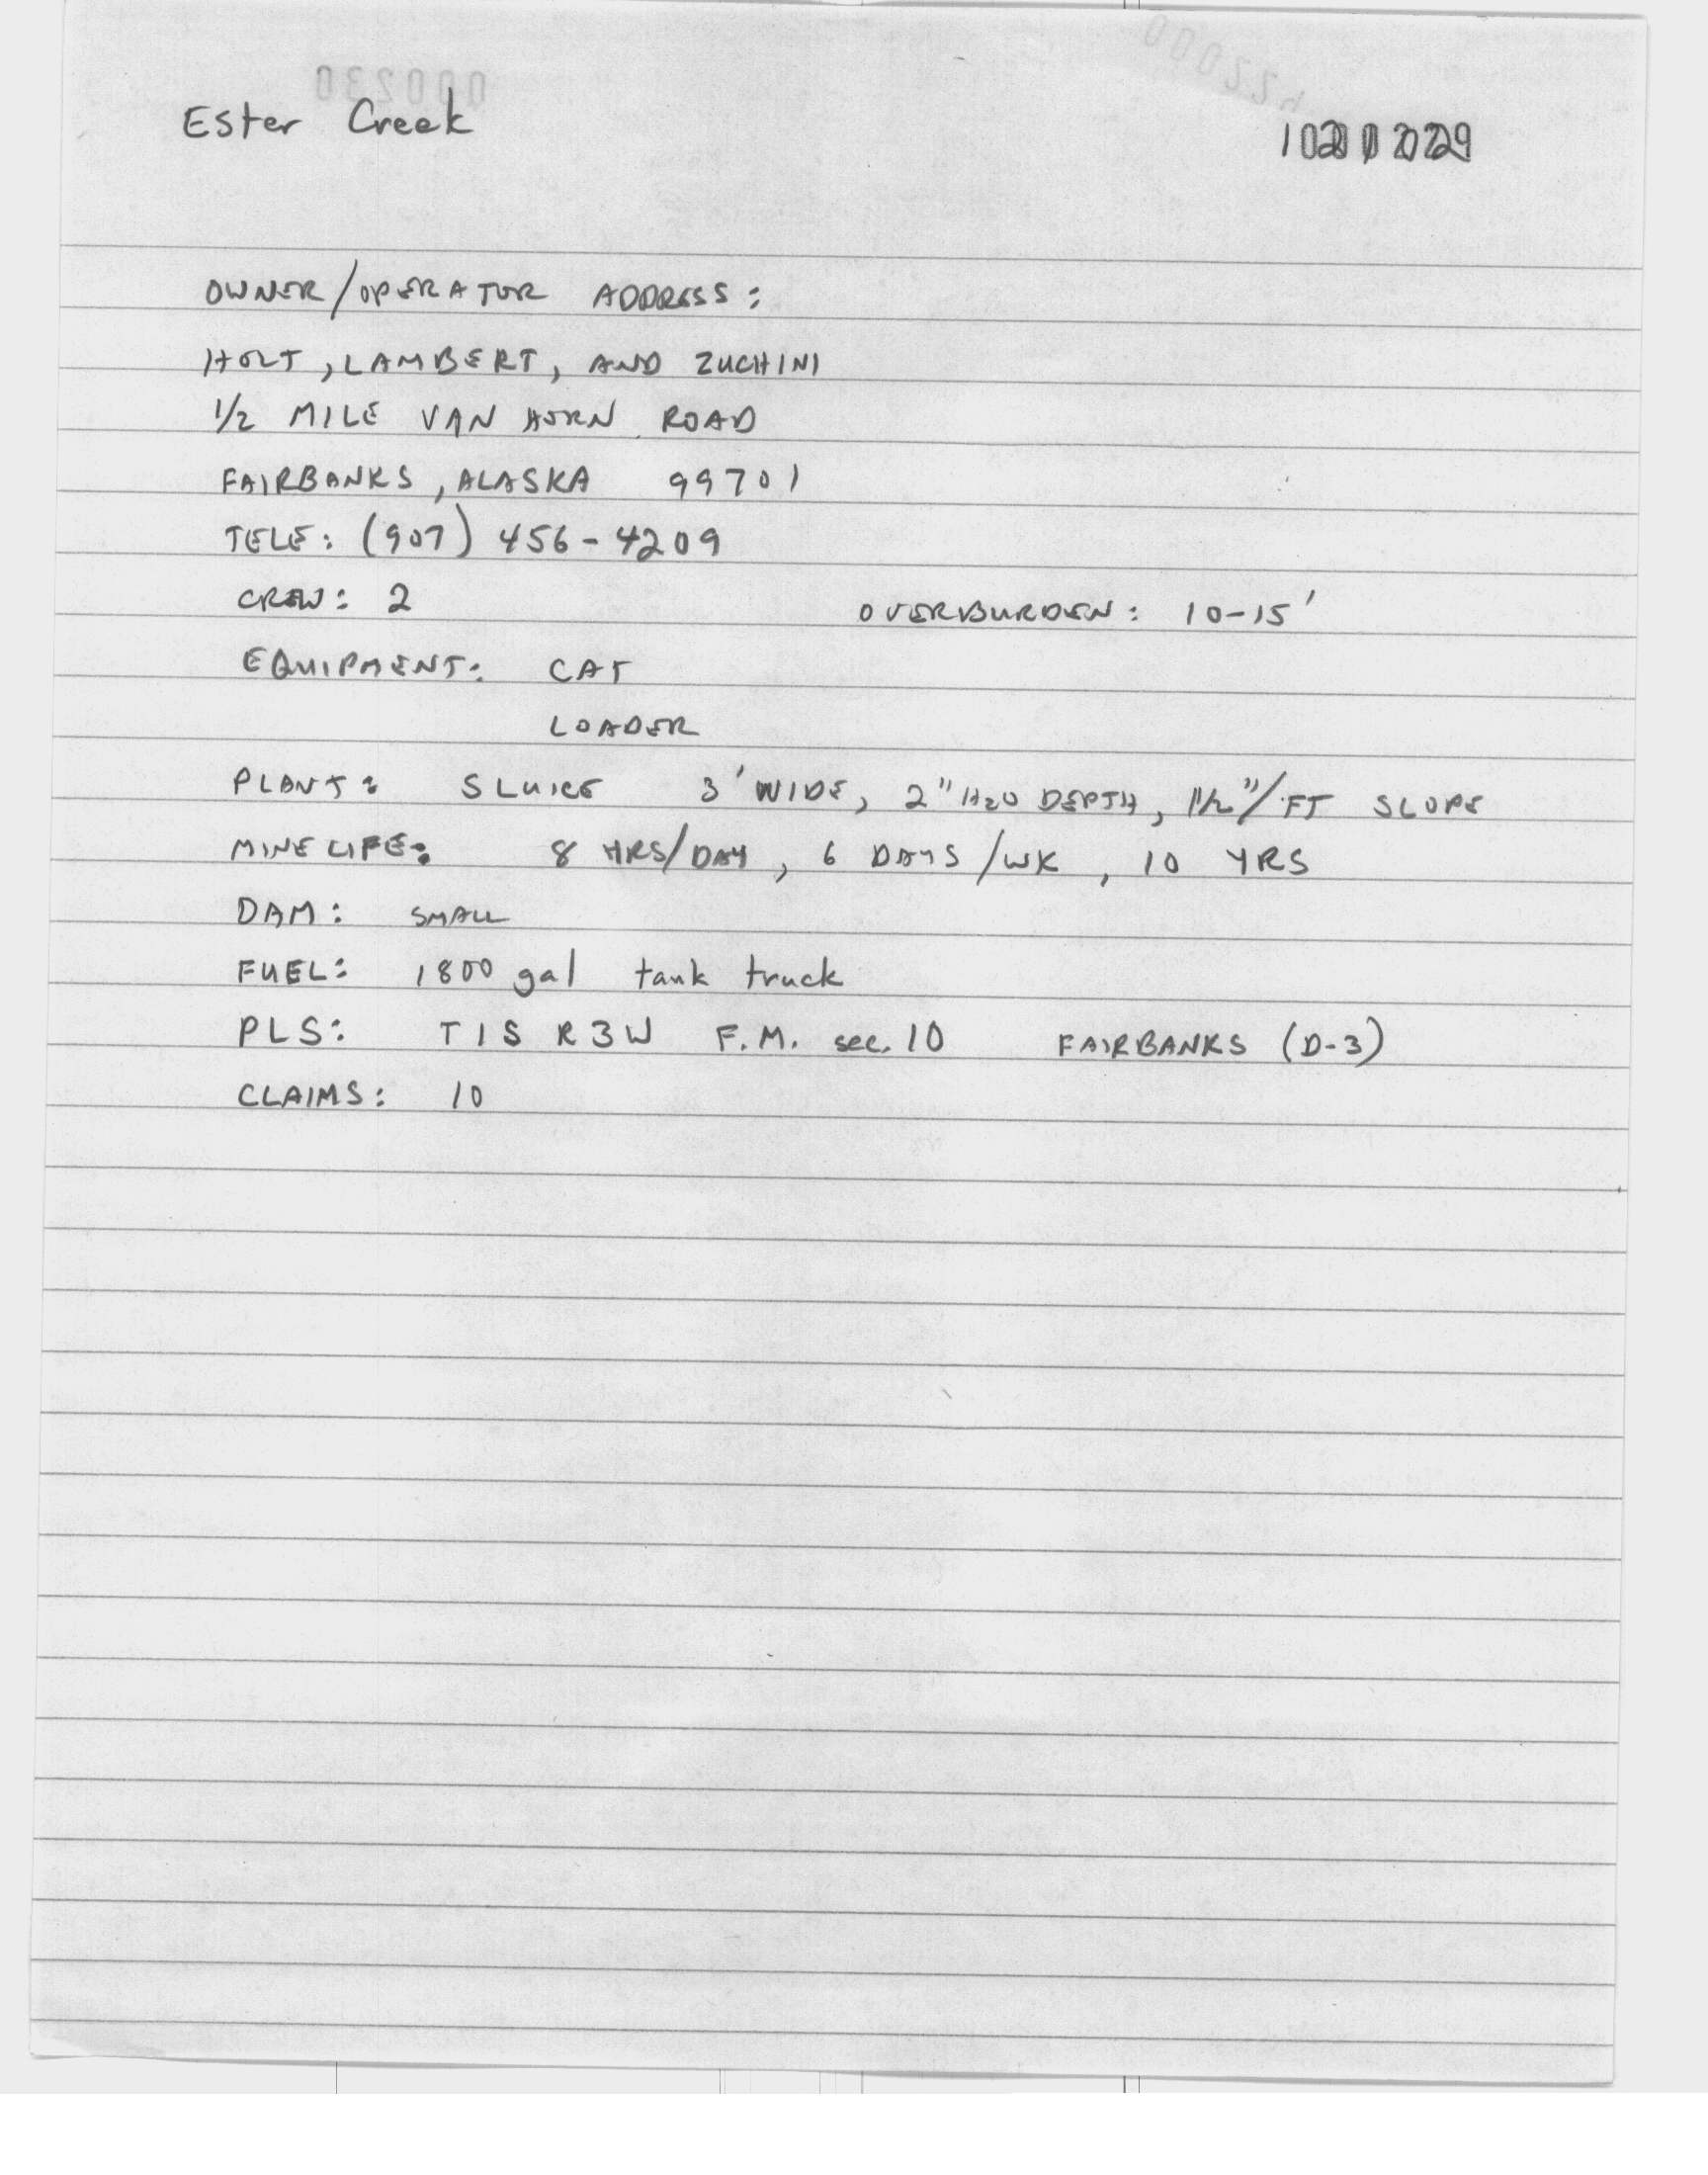 000230
Ester Creek
OWNER/OPERATOR ADDRESS:
HOLT, LAMBERT, AND ZUCHINI
1/2 MILE VAN HORN ROAD
FAIRBANKS, ALASKA 99701
TELE: (907) 456-4209
CREW: 2 OVERBURDEN: 10-15'
EQUIPMENT: CAT
LOADER
PLANT: SLUICE 3' WIDE, 2" H2O DEPTH, 1 1/2"/FT SLOPE
MINE LIFE: 8 HRS/DAY, 6 DAYS/WK, 10 YRS
DAM: SMALL
FUEL: 1800 gal tank truck
PLS: T1S R3W F.M. sec. 10 FAIRBANKS (D-3)
CLAIMS: 10